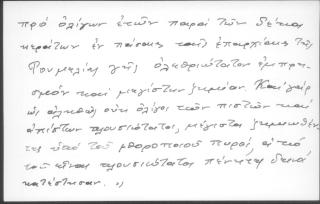 πρὸ ὀλίγων ἐτῶν παρὰ τῶν δέκα
κεραίτων ἐν πάσαις ταῖς ἐπαρχίαις τῆς
Ῥουμελίας γῆς ὀλεθριώτατον ἐμπρη-
σμὸν καὶ μεγίστην ζημίαν. Καὶ γὰρ
ὡς ἀληθῶς οὐκ ὀλίγοι τῶν πιστῶν καὶ
ἀπίστων πλουσιώτατοι, μέγιστα ζημιωθέν-
τες ὑπὸ τοῦ φθοροποιοῦ πυρός, ἀπὸ
τοῦ εἶναι πλουσιώτατοι πένητες
κατέστησαν. »)